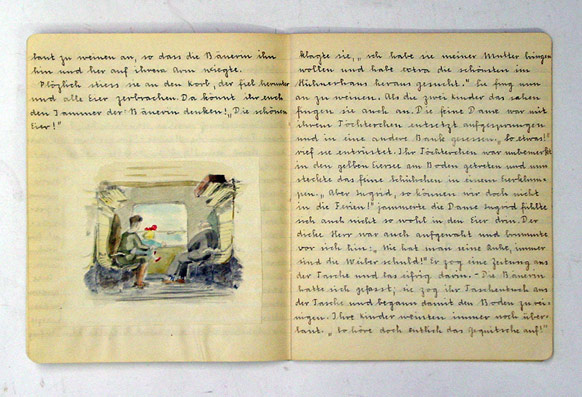 laut zu weinen an, so dass die Bäuerin ihn
hin und her auf ihrem Arm wiegte.
Plötzlich stiess sie an den Korb, der fiel herunter
und alle Eier zerbrachen. Da könnt ihr euch
den Jammer der Bäuerin denken! „Die schönen
Eier!"
klagte sie, „ich habe sie meiner Mutter bringen
wollen und habe extra die schönsten im
Hühnerhaus heraus gesucht." Sie fing nun
an zu weinen. Als die zwei Kinder das sahen
fingen sie auch an. Die feine Dame war mit
ihrem Töchterchen entsetzt aufgesprungen
und in eine andere Bank gesessen. „So etwas!"
rief sie entrüstet. Ihr Töchterchen war unbemerkt
in den gelben Eiersee am Boden getreten und nun
steckte das feine Schühchen in einem Eierklum-
pen. „Aber Sugrid, so können wir doch nicht
in die Ferien!" jammerte die Dame. Sugrid fühlte
sich auch nicht so wohl in den Eier drin. Der
dicke Herr war auch aufgewacht und brummte
vor sich hin: „Nie hat man seine Ruhe, immer
sind die Weiber schuld!" Er zog eine Zeitung aus
der Tasche und las eifrig darin. – Die Bäuerin
hatte sich gefasst; sie zog ihr Taschentuch aus
der Tasche und begann damit den Boden zu rei-
nigen. Ihre Kinder weinten immer noch über-
laut. „So höre doch entlich das Gequitsche auf!"